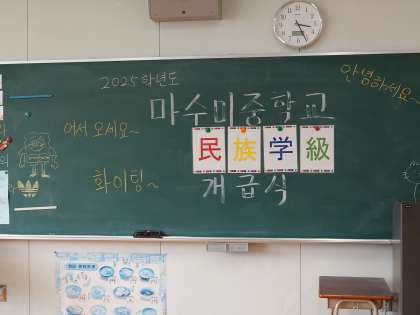 2025학년도
안녕하세요
마수미중학교
어서 오세요~
民族学級
화이팅~
개급식